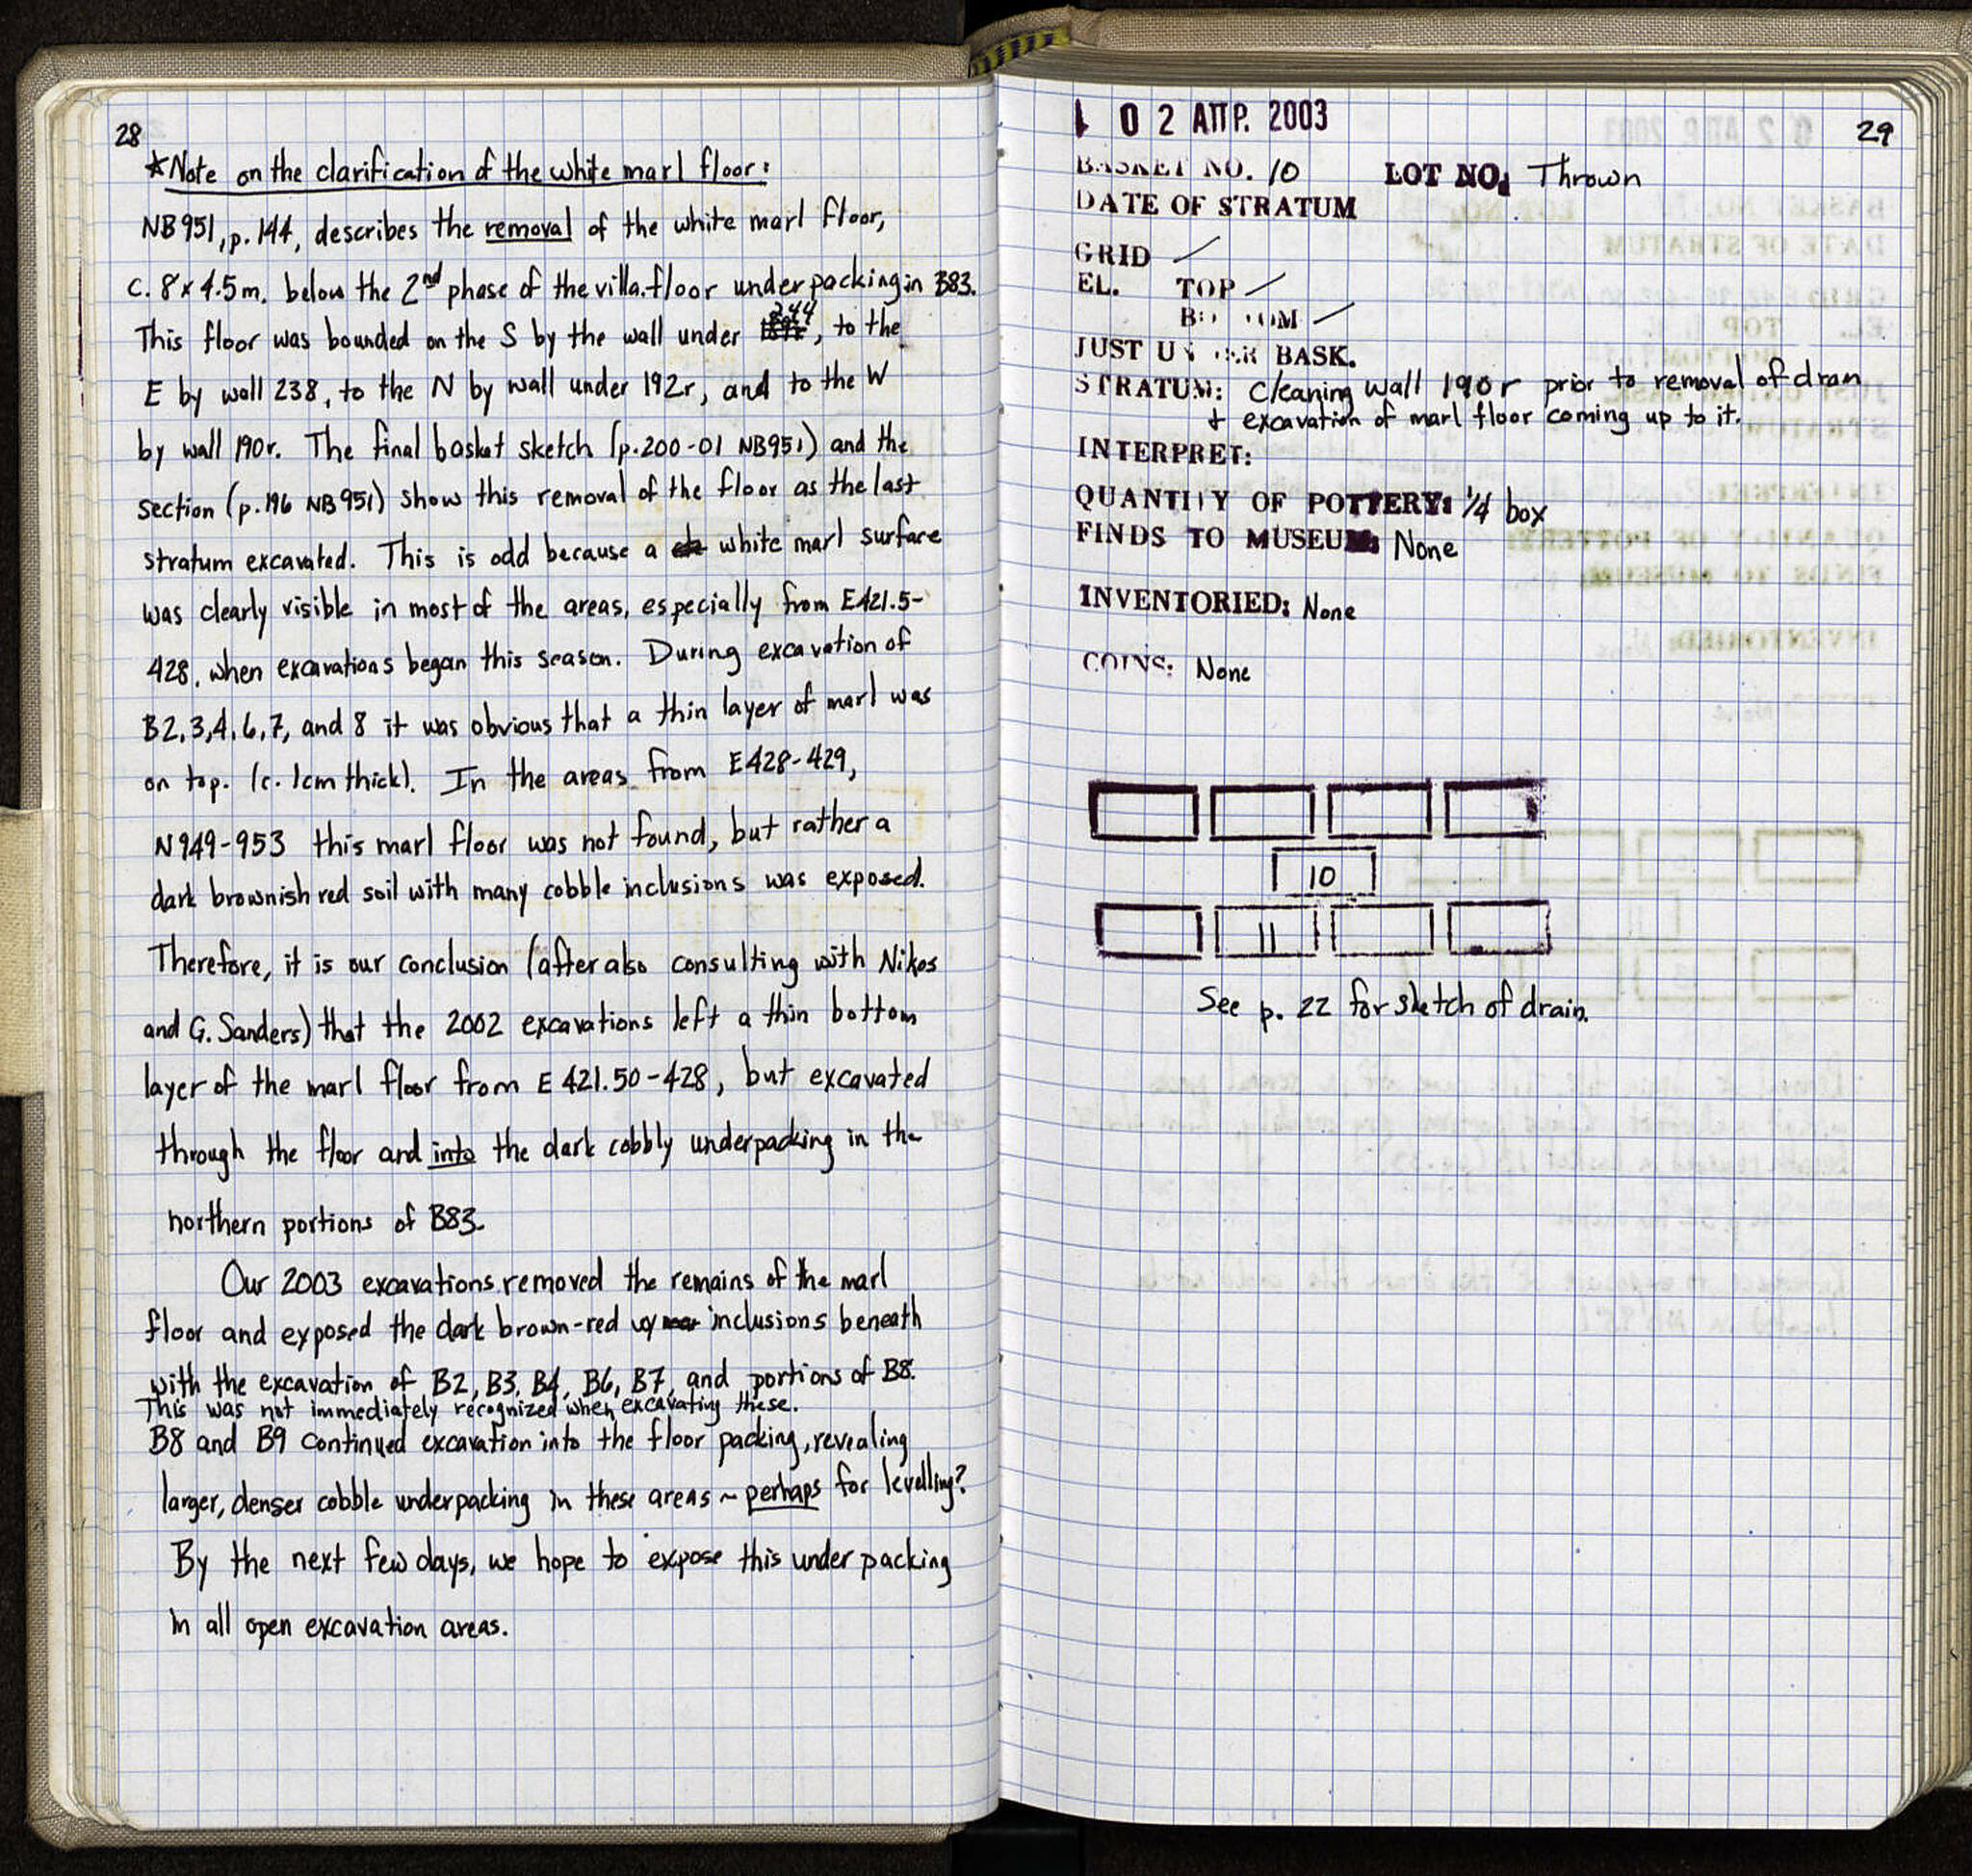 28
*Note on the clarification of the white marl floor:
NB951, p.144, describes the removal of the white marl floor,
c. 8x4.5m. below the 2nd phase of the villa floor underpacking in B83.
This floor was bounded on the S by the wall under 244, to the
E by wall 238, to the N by wall under 192r, and to the W
by wall 190r. The final basket sketch (p.200-01 NB951) and the
section (p.196 NB951) show this removal of the floor as the last
stratum excavated. This is odd because a white marl surface
was clearly visible in most of the areas, especially from E421.5-
428, when excavations began this season. During excavation of
B2,3,4,6,7, and 8 it was obvious that a thin layer of marl was
on top. (c. 1cm thick). In the areas from E428-429,
N949-953 this marl floor was not found, but rather a
dark brownish red soil with many cobble inclusions was exposed.
Therefore, it is our conclusion (after also consulting with Nikos
and G. Sanders) that the 2002 excavations left a thin bottom
layer of the marl floor from E 421.50-428, but excavated
through the floor and into the dark cobbly underpacking in the
northern portions of B83.
Our 2003 excavations removed the remains of the marl
floor and exposed the dark brown-red w/ inclusions beneath
with the excavation of B2, B3, B4, B6, B7, and portions of B8.
This was not immediately recognized when excavating these.
B8 and B9 continued excavation into the floor packing, revealing
larger, denser cobble underpacking in these areas ~ perhaps for levelling?
By the next few days, we hope to expose this underpacking
in all open excavation areas.
02 ΑΠΡ. 2003
29
BASKET NO. 10 LOT NO: Thrown
DATE OF STRATUM
GRID /
EL. TOP /
BOTTOM /
JUST UNDER BASK.
STRATUM: cleaning wall 190r prior to removal of drain
+ excavation of marl floor coming up to it.
INTERPRET:
QUANTITY OF POTTERY: 1/4 box
FINDS TO MUSEUM: None
INVENTORIED: None
COINS: None
10
11
See p. 22 for sketch of drain.